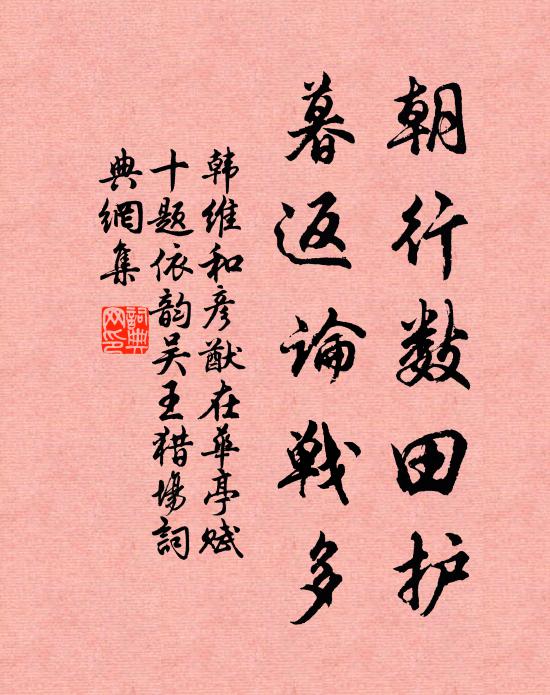 朝行数田护
暮返論戦多
韩维和彦猷在華亭赋
十题依韵吴王猎場詞
典網集
詞典
网印